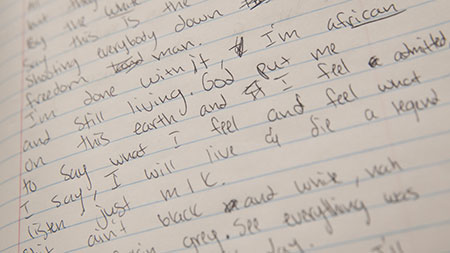 but they
By the
say this is the
shooting everybody down to
freedom man.
I'm done with it, I'm african
and still living. God put me
on this earth and I feel admitted
to say what I feel and feel what
I say, I will live & die a legend
listen just mlk.
ain't black and white, nah
grey. See everything was
day. I'll